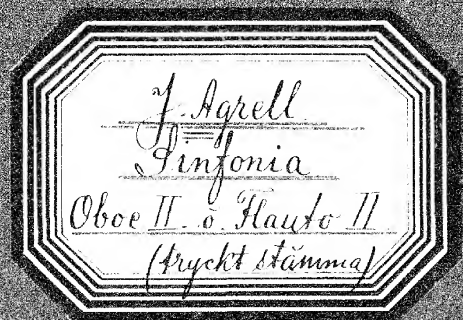 J. Agrell
Sinfonia
Oboe II. o. Flauto II
(tryckt stämma)